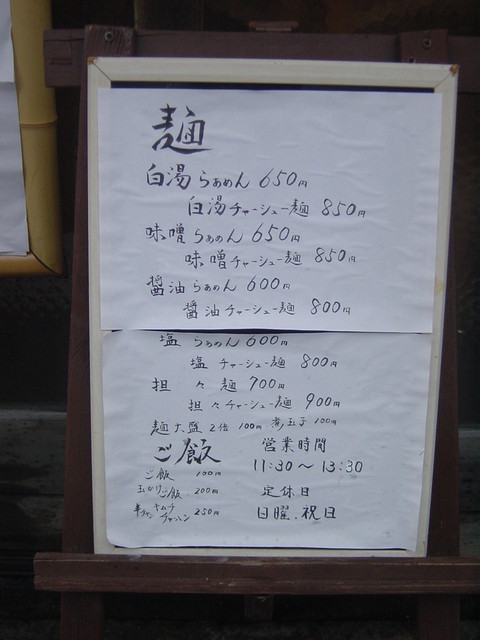 麺
白湯らぁめん 650円
白湯チャーシュー麺 850円
味噌らぁめん 650円
味噌チャーシュー麺 850円
醤油らぁめん 600円
醤油チャーシュー麺 800円
塩らぁめん 600円
塩チャーシュー麺 800円
担々麺 700円
担々チャーシュー麺 900円
麺大盛2倍 100円 煮玉子 100円
ご飯
ご飯 100円
玉かけご飯 200円
キムチチャーハン 250円
営業時間
11:30〜13:30
定休日
日曜、祝日